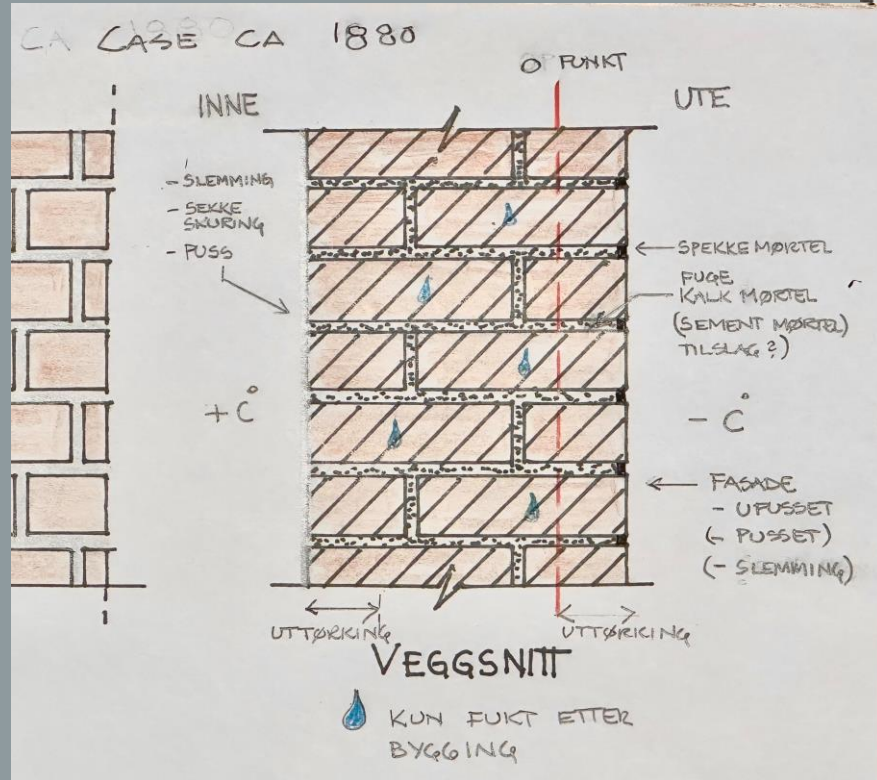 CASE CA 1880
O PUNKT
INNE
UTE
- SLEMMING
- SEKKE
SKURING
- PUSS
SPEKKEMØRTEL
FUGE
KALK MØRTEL
(SEMENT MØRTEL)
TILSLAG?)
+C°
-C°
FASADE
- UPUSSET
(- PUSSET)
(- SLEMMING)
UTTØRKING
UTTØRKING
VEGGSNITT
KUN FUKT ETTER
BYGGING